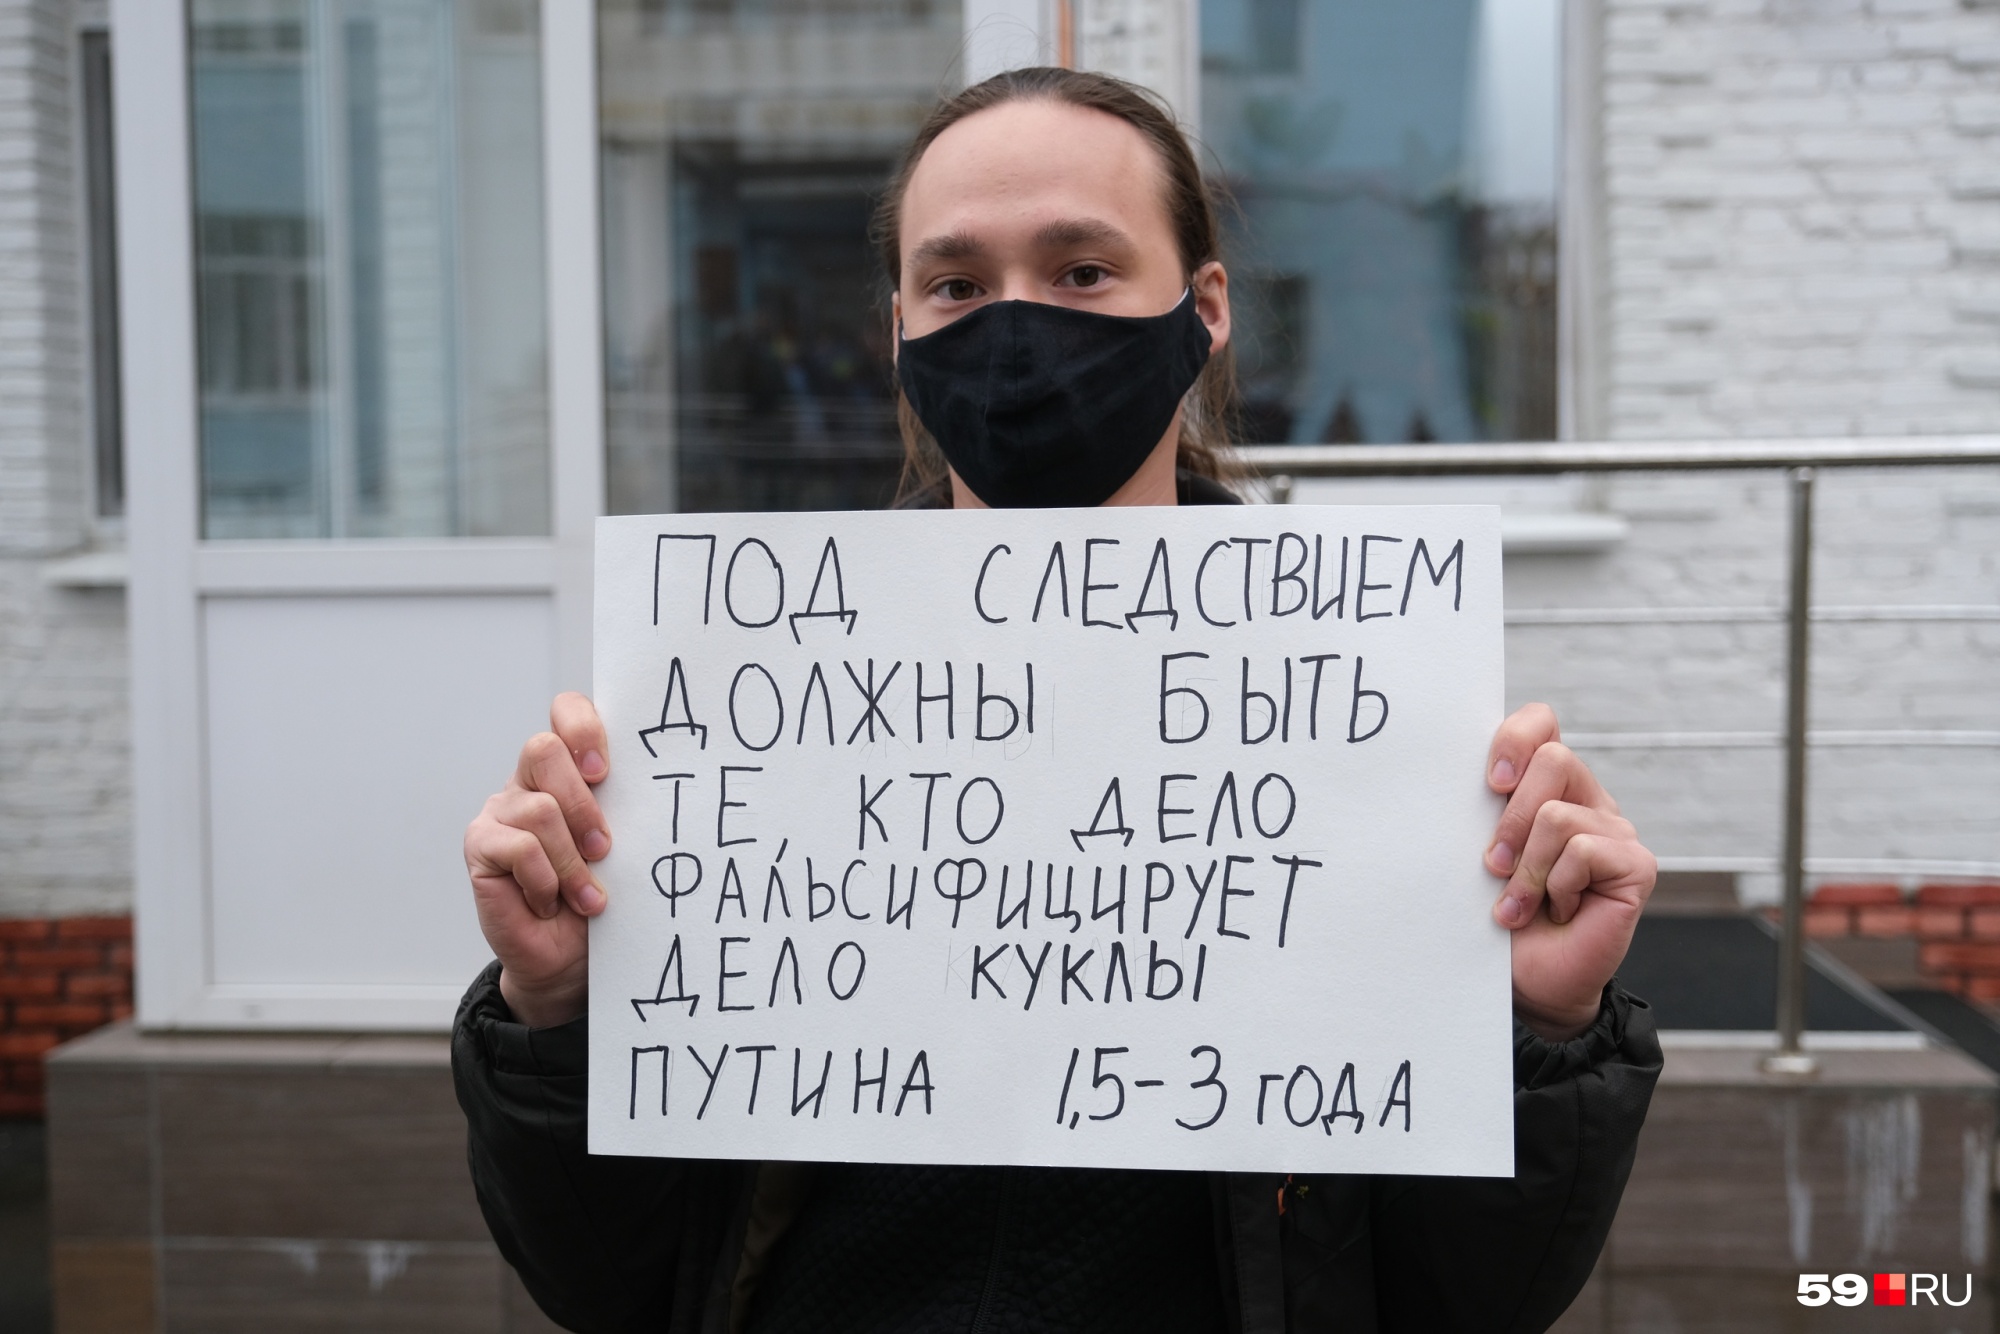 ПОД СЛЕДСТВИЕМ
ДОЛЖНЫ БЫТЬ
ТЕ, КТО ДЕЛО
ФАЛЬСИФИЦИРУЕТ
ДЕЛО КУКЛЫ
ПУТИНА 1,5-3 ГОДА
59 RU